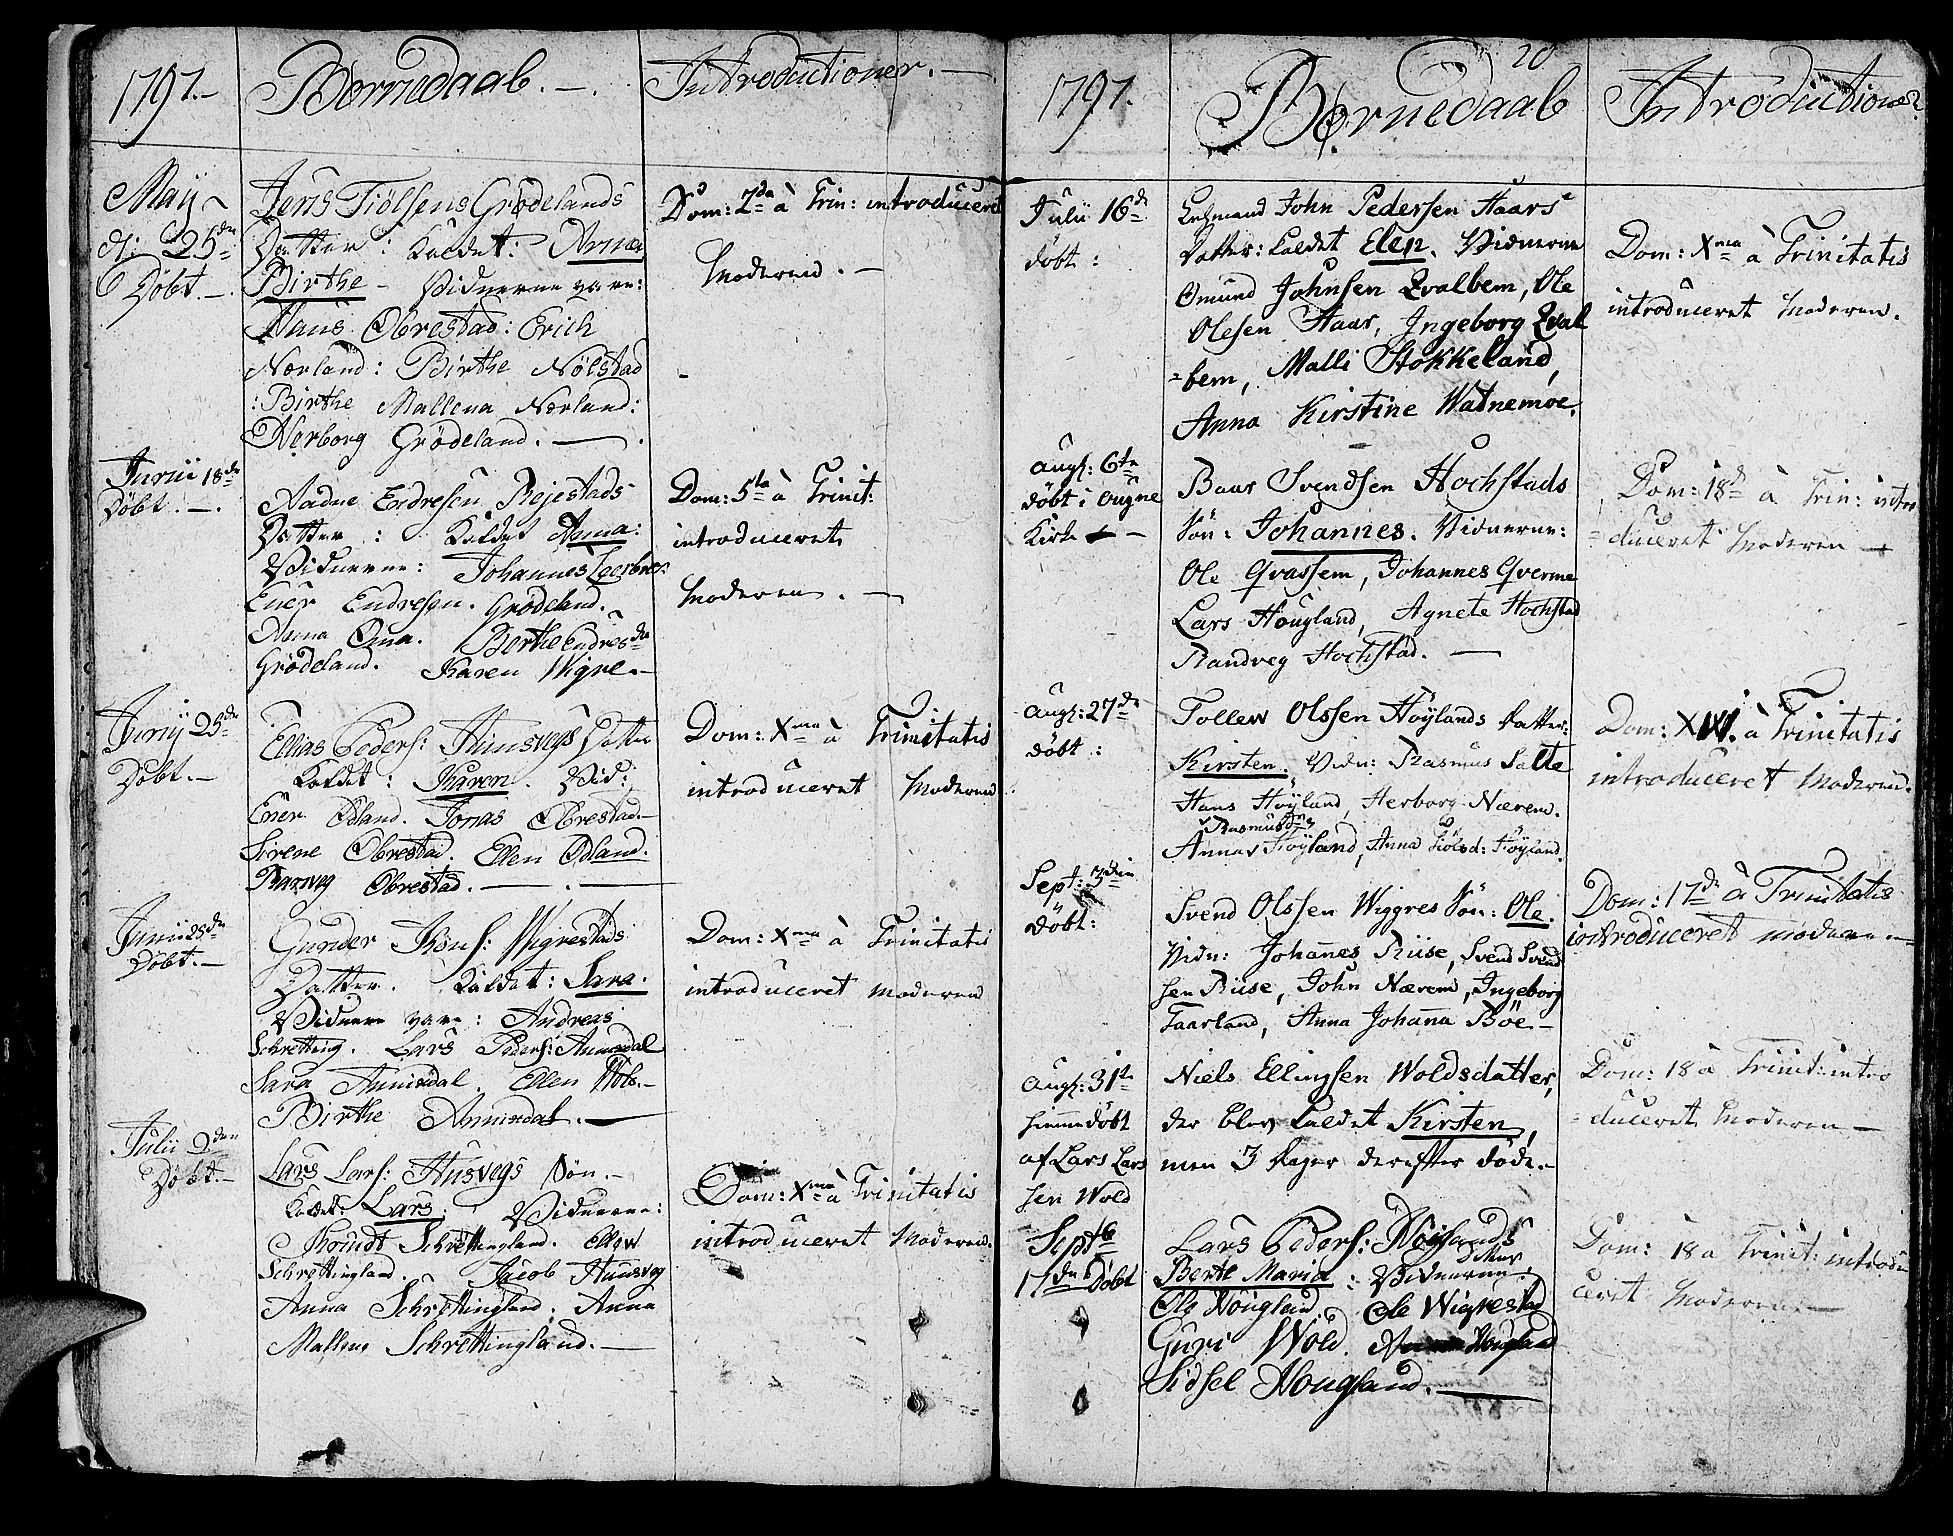 1797.-
Børnedaab. -.
Introductioner. -
May
d: 25de
Døbt. -.
Jens Tiølsens Grødelands
Datter: Kaldet: Anna
Birthe - Vidnerne vare:
Hans Obrestad: Erich
Nærland: Birthe Nølstad
: Birthe Mallena Nærland:
Herborg Grødeland. -
Dom: 2da à Trin: introduceret
Moderen. -
Junii 18de
Døbt. -.
Aadne Endresen Rejestads
Datter: Kaldet Anna:
Vidnerne: Johannes Leerbræ
Ener Endresen. Grødeland.
Anna Qvia. Berthe Endresdr
Grødeland. Karen Wigre. -
Dom: 5ta à Trinit:
introduceret
Moderen. -
Junij 25de
Døbt. -
Ellias Peders: Huusvegs Datter
Kaldet: Karen. Vid:
Ener Ødland. Jonas Obrestad. -
Sirene Obrestad. Ellen Ødland.
Ranveg Obrestad. -
Dom: Xma à Trinitatis
introduceret Moderen
Junii 25de
Døbt. -
Gunder Thors: Wigrestads
Datter. Kaldet: Sara.
Vidnere vare: Andreas
Schretting. Lars Peders: Aniisdal
Sara Aniisdal. Ellen Wols. -
Birthe Aniisdal. -
Dom: Xma à Trinitatis
introduceret Moderen
Julii 2den
Døbt. -
Lars Lars: Husvegs Søn. -
Kaldt: Lars. Vidnerne:
Thorndt Schrettingland. Ellen
Schrettingland. Jacob Huusveg
Anna Schrettingland. Anna
Mallene Schrettingland. -
Dom: Xma à Trinitatis
introduceret Moderen.
20
1797.
Børnedaab
Introductioner
Julii 16de
døbt:
Lehmand John Pedersen Haars
Datter: kaldet Elen. Vidnerne
Omund Johnsen Qvalbem, Ole
Olesen Haar, Ingeborg Qval
=bem, Malli Stokkeland,
Anna Kirstine Watnemoe.
Dom: Xma à Trinitatis
introduceret Moderen.
Augs: 6te
døbt i Ougne
Kirke -
Baar Svendsen Hochstads
Søn: Johannes. Vidnerne:
Ole Qvassem, Johannes Qverme
Lars Hougland, Agnete Hochstad
Randveg Hochstad. -
Dom: 18de à Trin: intro
=duceret Moderen -
Augs: 27de
døbt:
Tollew Olssen Høylands Datter:
Kirsten. Vidn: Rasmus Salte
Hans Høyland, Herborg Nærem.
Rasmusdr
Anna Høyland, Anna Tiølsd: Høyland.
Dom: XVI. à Trinitatis
introduceret Moderen.
Sept: 3die
døbt:
Svend Olssen Wiggres Søn: Ole.
Vidn: Johannes Riise, Svend Svend
sen Riise, John Nærem, Ingeborg
Taarland, Anna Johanna Bøe -
Dom: 17de à Trinitatis
introduceret moderen -
Augs: 31te
hiemmedøbt
af Lars Lars
sen Wold
Niels Ellingsen Woldsdatter,
der blev kaldet Kirsten,
men 3 Dager derefter døde. -
Dom: 18 à Trinit: intro
=duceret Moderen -
Septb
17de Døbt
Lars Peders: Høylands
Dotter
Berte Maria: Vidnerne:
Ole Hougland. Ole Wigrestad
Guri Wold. Hougland
Sidsel Hougland. -
Dom: 18 à Trinit: introdu
ceret Moderen -